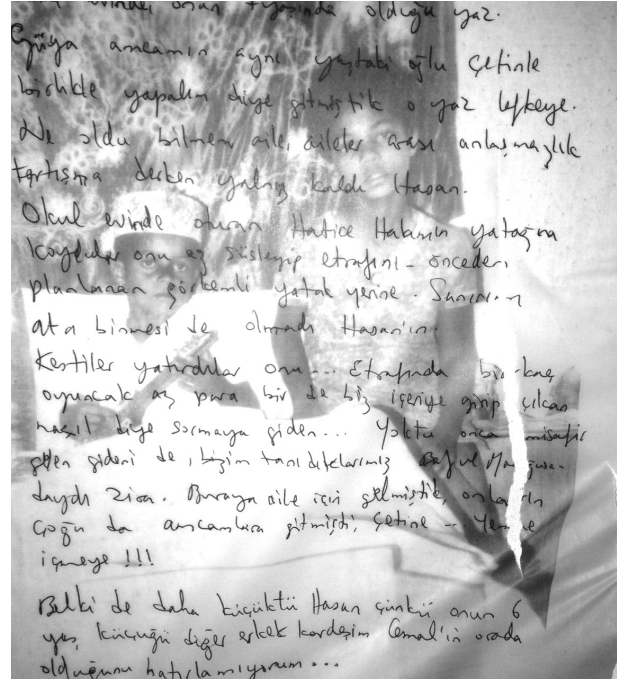 evindeı onun yaşında olduğu yaz.
Güya amcamın aynı yaştaki oğlu Çetinle
birlikte yapalım diye gitmiştik o yaz Lefkeye.
Ne oldu bilmem aile, aileler arası anlaşmazlık
tartışma derken yalnız kaldı Hasan.
Okul evinde oturan Hatice Habamın yatağına
koydular onu az süsleyip etrafını - önceden
planlanan görkemli yatak yerine.
ata binmesi de olmadı Hasan'ın.
Kestiler yatırdılar onu... Etrafında bir kaç
oyuncak az para bir de biz içeriye girip çıkan
nasıl diye sormaya giden... Yoktu onca misafir
gelen gideni de, bizim tanıdıklarımız Baf ve
daydı zira. Buraya aile için gelmiştik, onların
çoğu da amcamlara gitmişti, Çetine... Yemeye
içmeye !!!
Belki de daha küçüktü Hasan çünkü onun 6
yaş küçüğü diğer erkek kardeşim Cemal'in orada
olduğunu hatırlamıyorum...